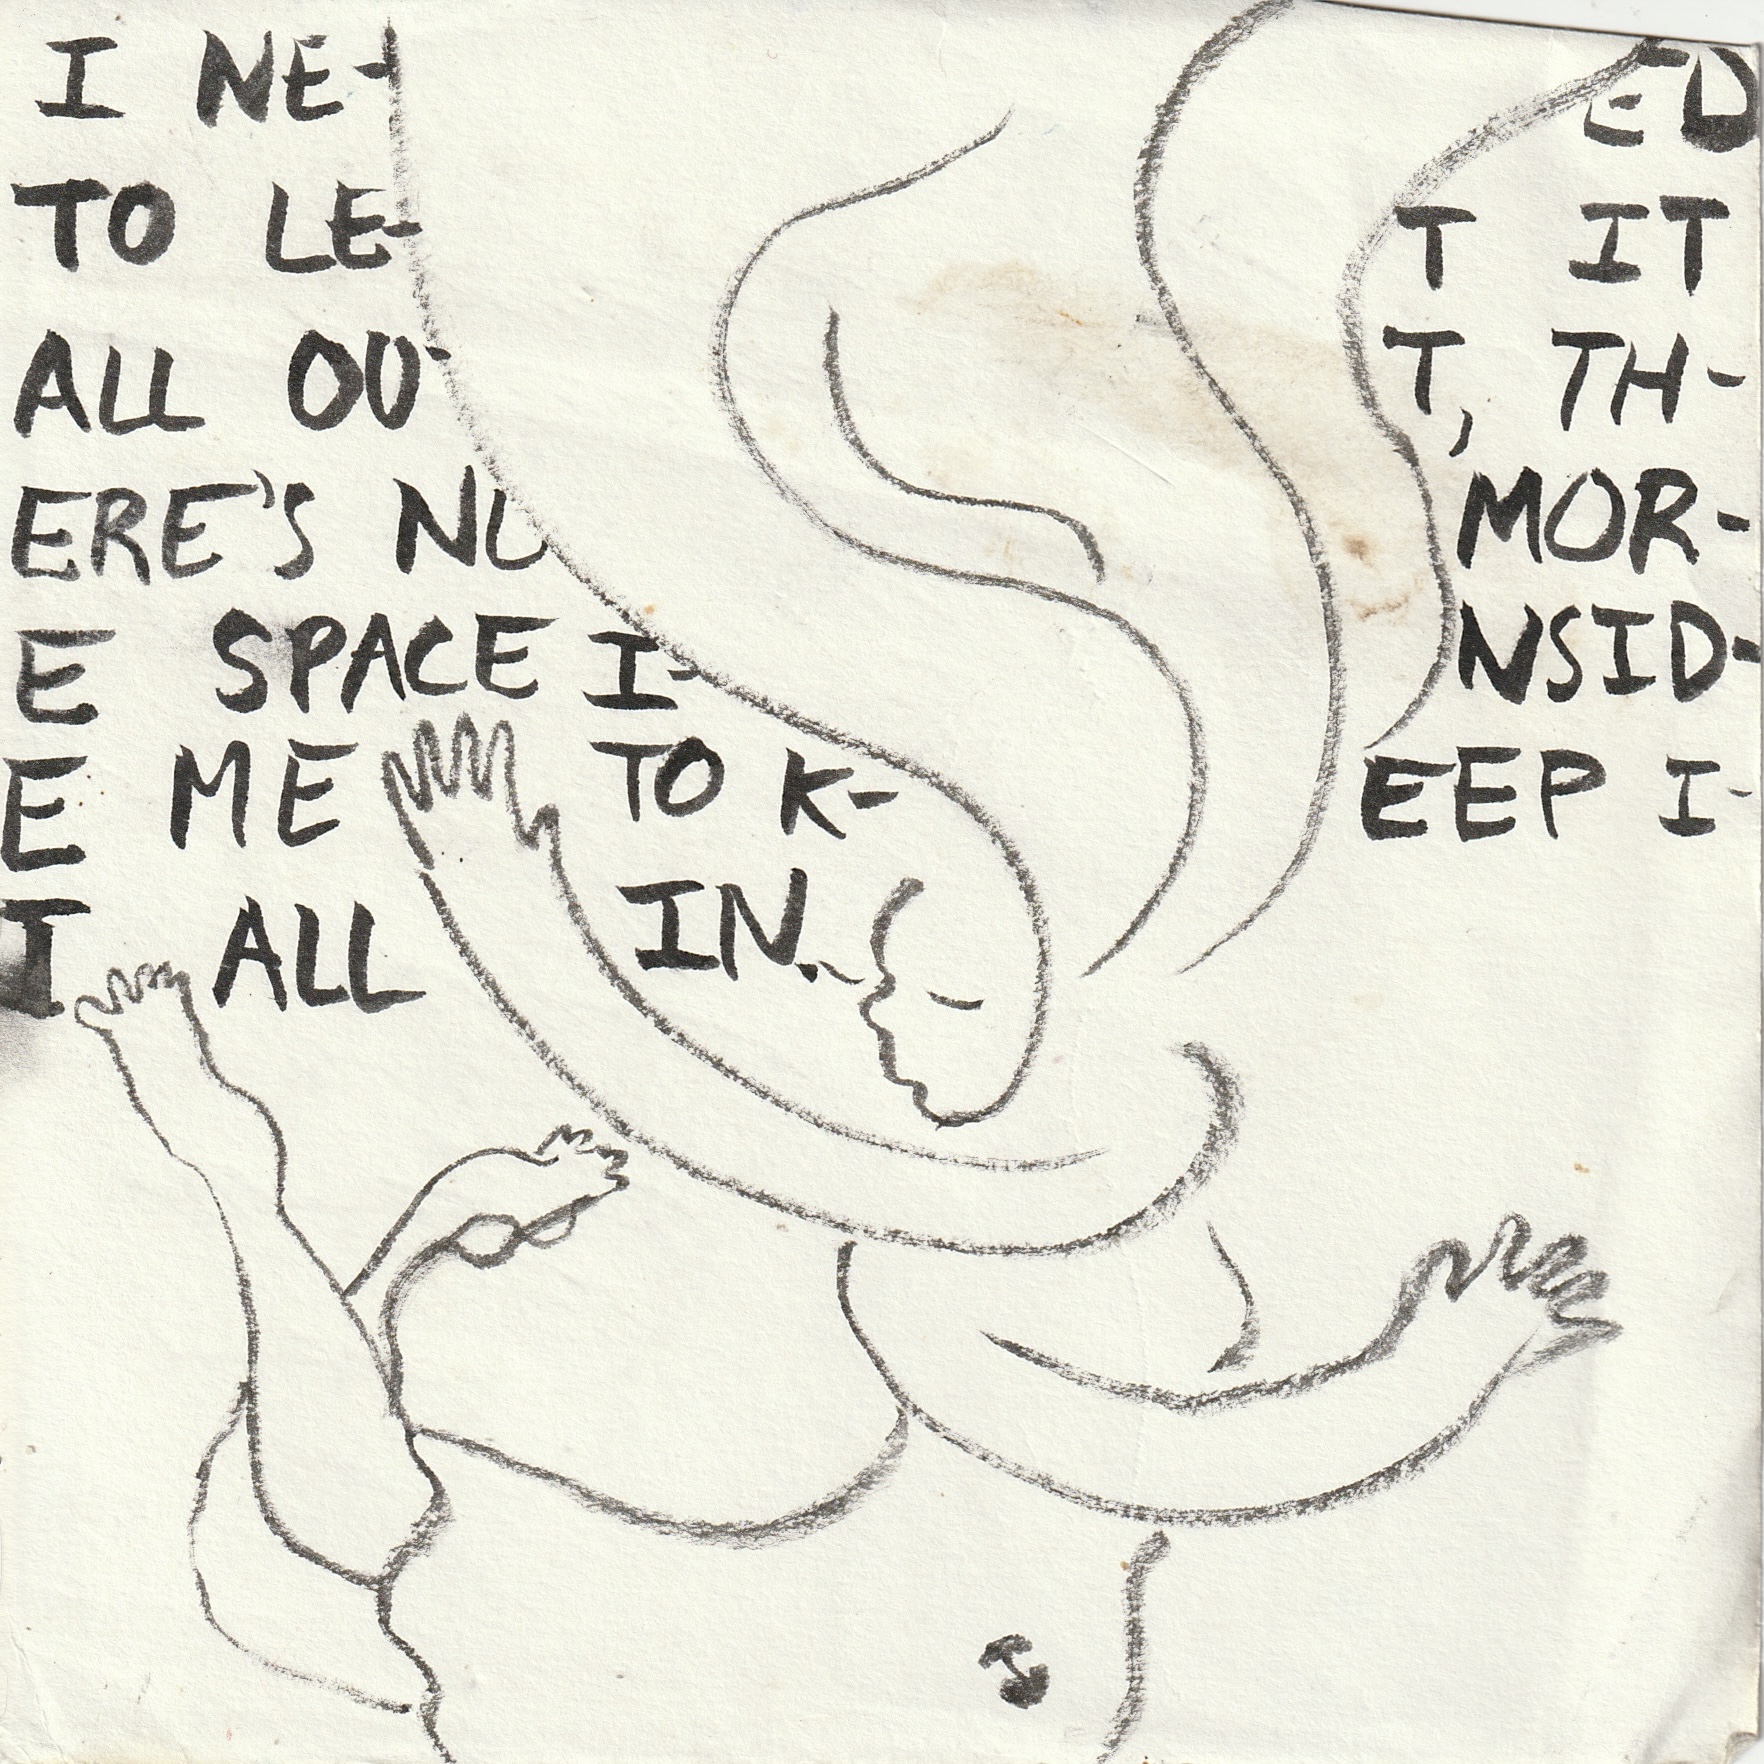 I NE- ED
TO LE- T IT
ALL OU- T, TH-
ERE'S NO MOR-
E SPACE I- NSID-
E ME TO K- EEP I-
T ALL IN.